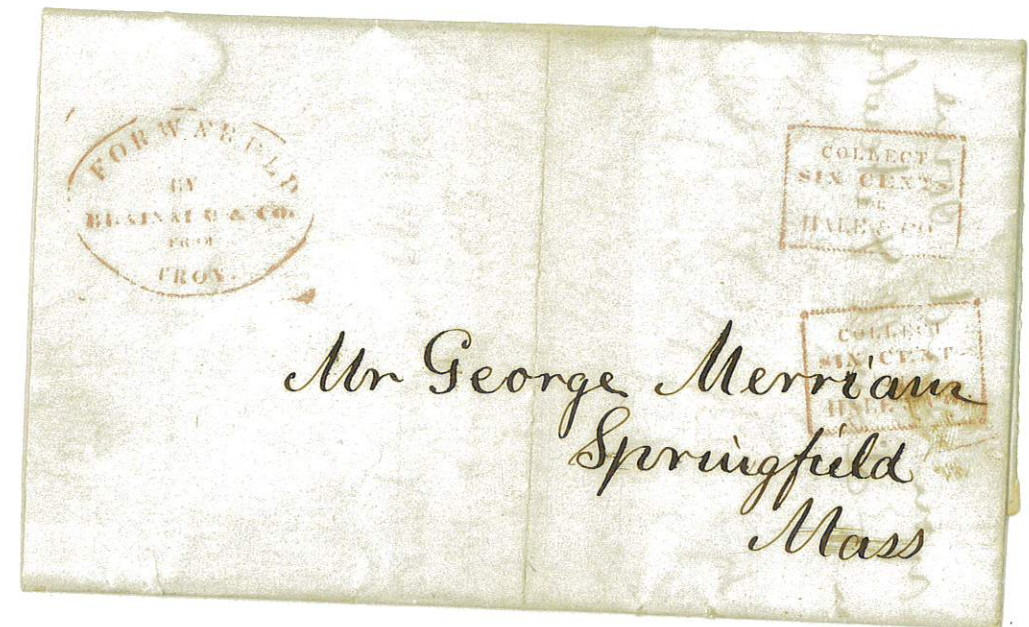 FORWARDED
BY
BRAINARD & CO.
FROM
TROY.
COLLECT
SIX CENTS
FOR
HALE & CO
COLLECT
SIX CENT
HALE
Mr George Merriam
Springfield
Mass